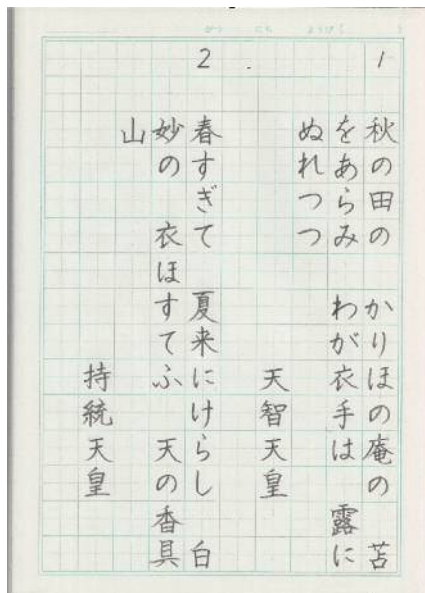 1
秋の田の　かりほの庵の　苫
をあらみ　わが衣手は　露に
ぬれつつ
天智天皇
2
春すぎて　夏来にけらし　白
妙の　衣ほすてふ　天の香具
山
持統天皇